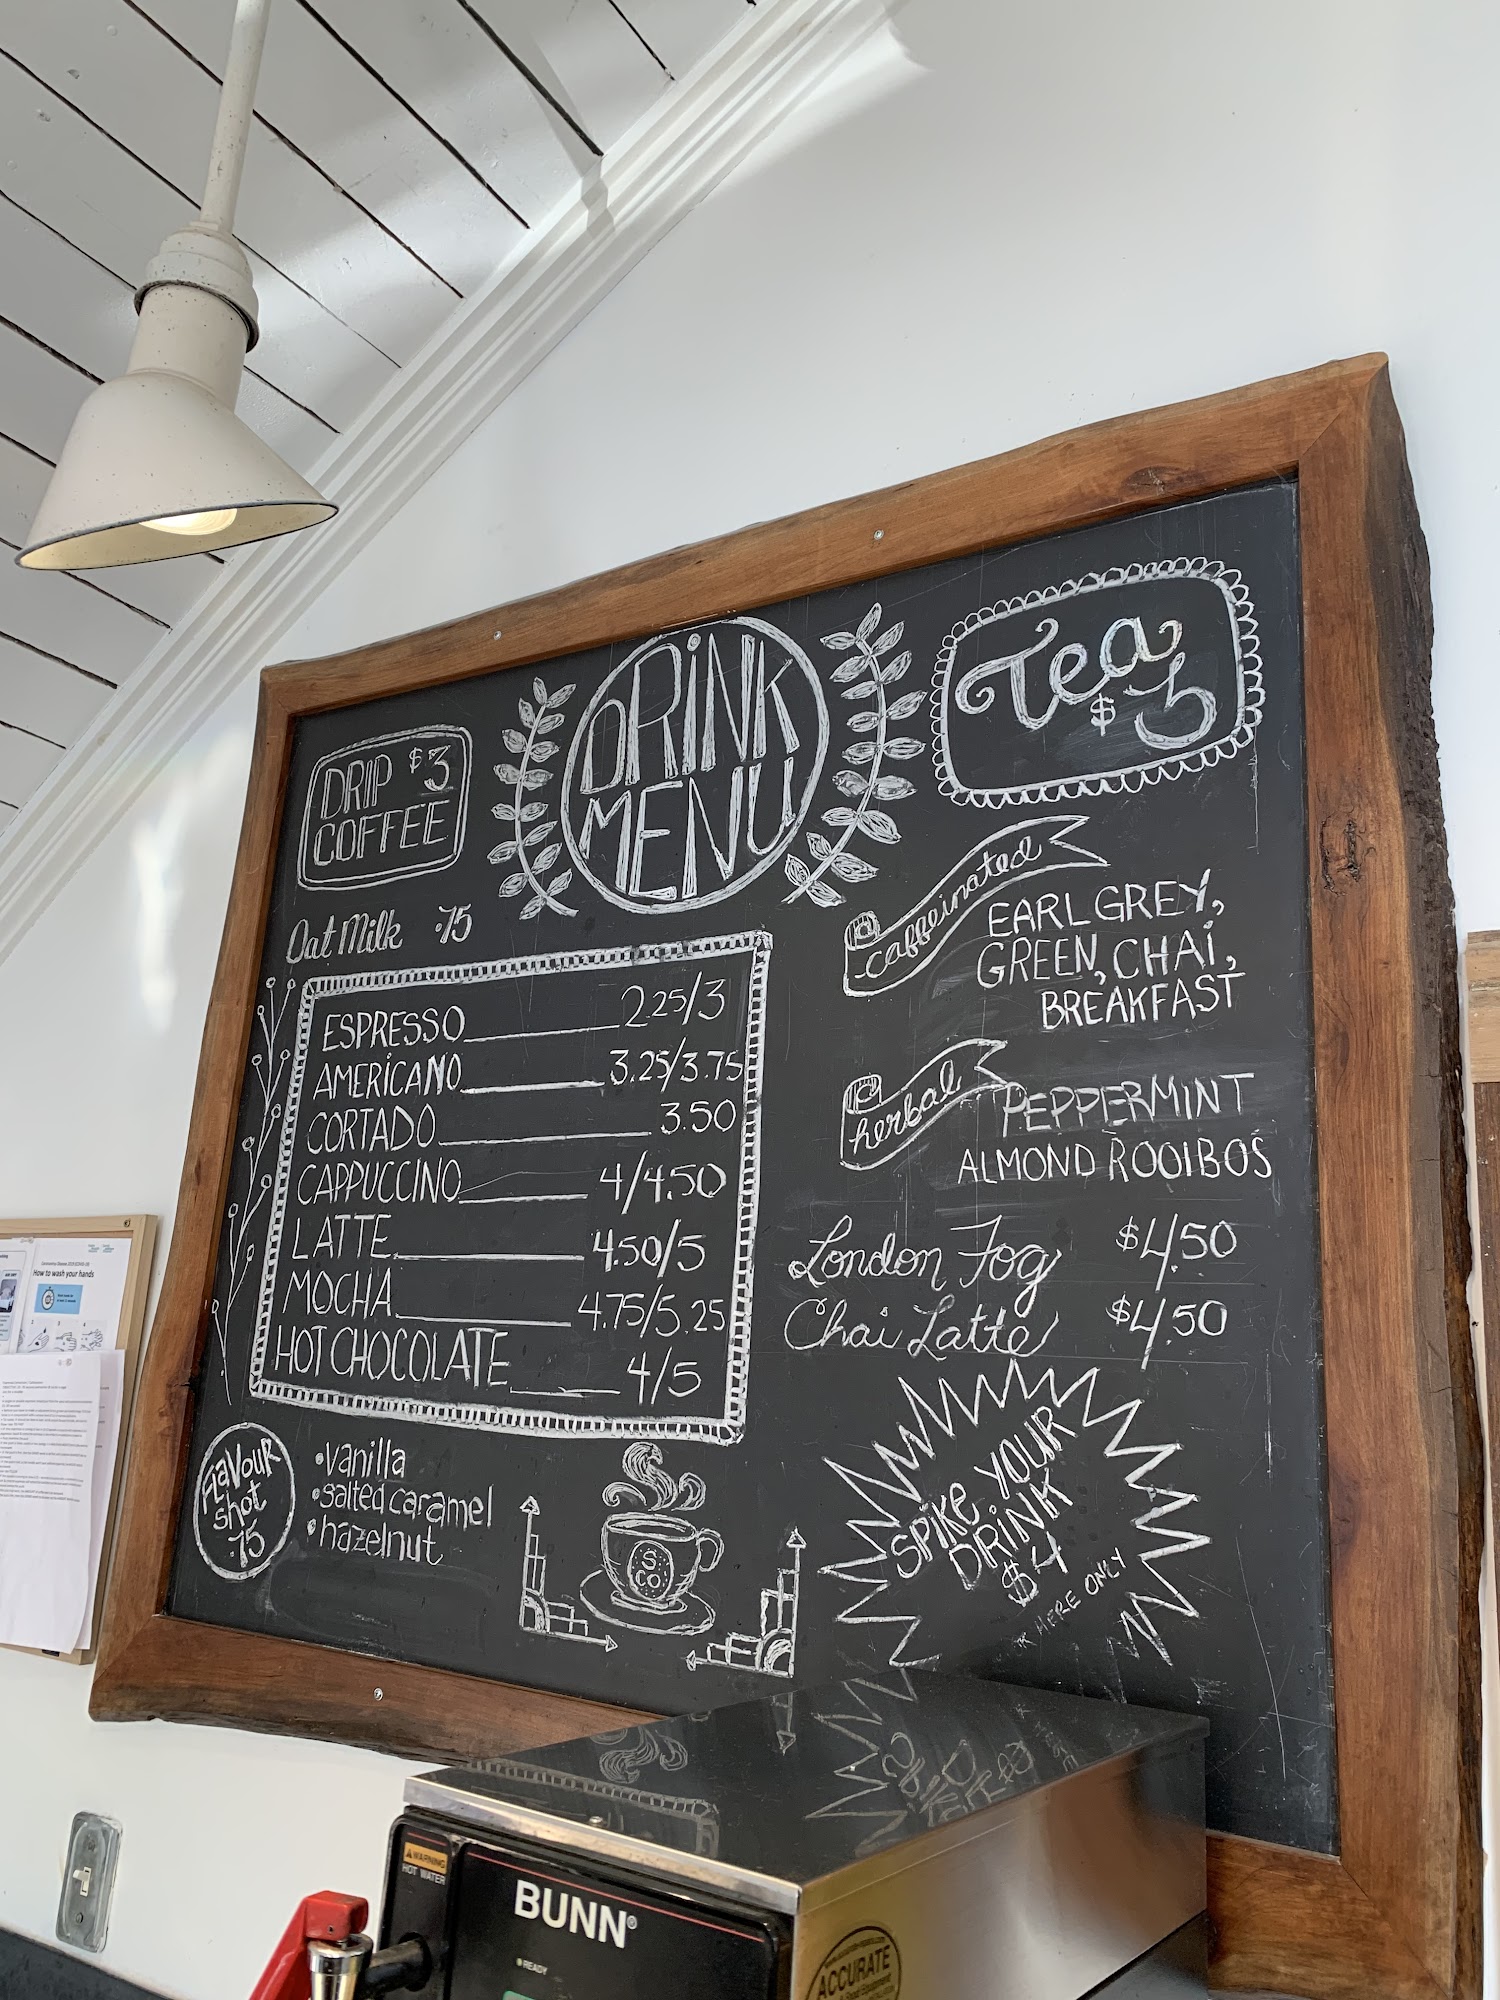 DRINK
MENU
DRIP $3
COFFEE
Tea
$3
Oat Milk .75
ESPRESSO 2.25/3
AMERICANO 3.25/3.75
CORTADO 3.50
CAPPUCCINO 4/4.50
LATTE 4.50/5
MOCHA 4.75/5.25
HOT CHOCOLATE 4/5
Flavour
shot
.75
•vanilla
•salted caramel
•hazelnut
S
CO
caffeinated
EARL GREY,
GREEN, CHAI,
BREAKFAST
herbal
PEPPERMINT
ALMOND ROOIBOS
London Fog $4.50
Chai Latte $4.50
SPIKE YOUR
DRINK
$4
* HERE ONLY
How to wash your hands
WARNING
HOT WATER
BUNN®
READY
ACCURATE